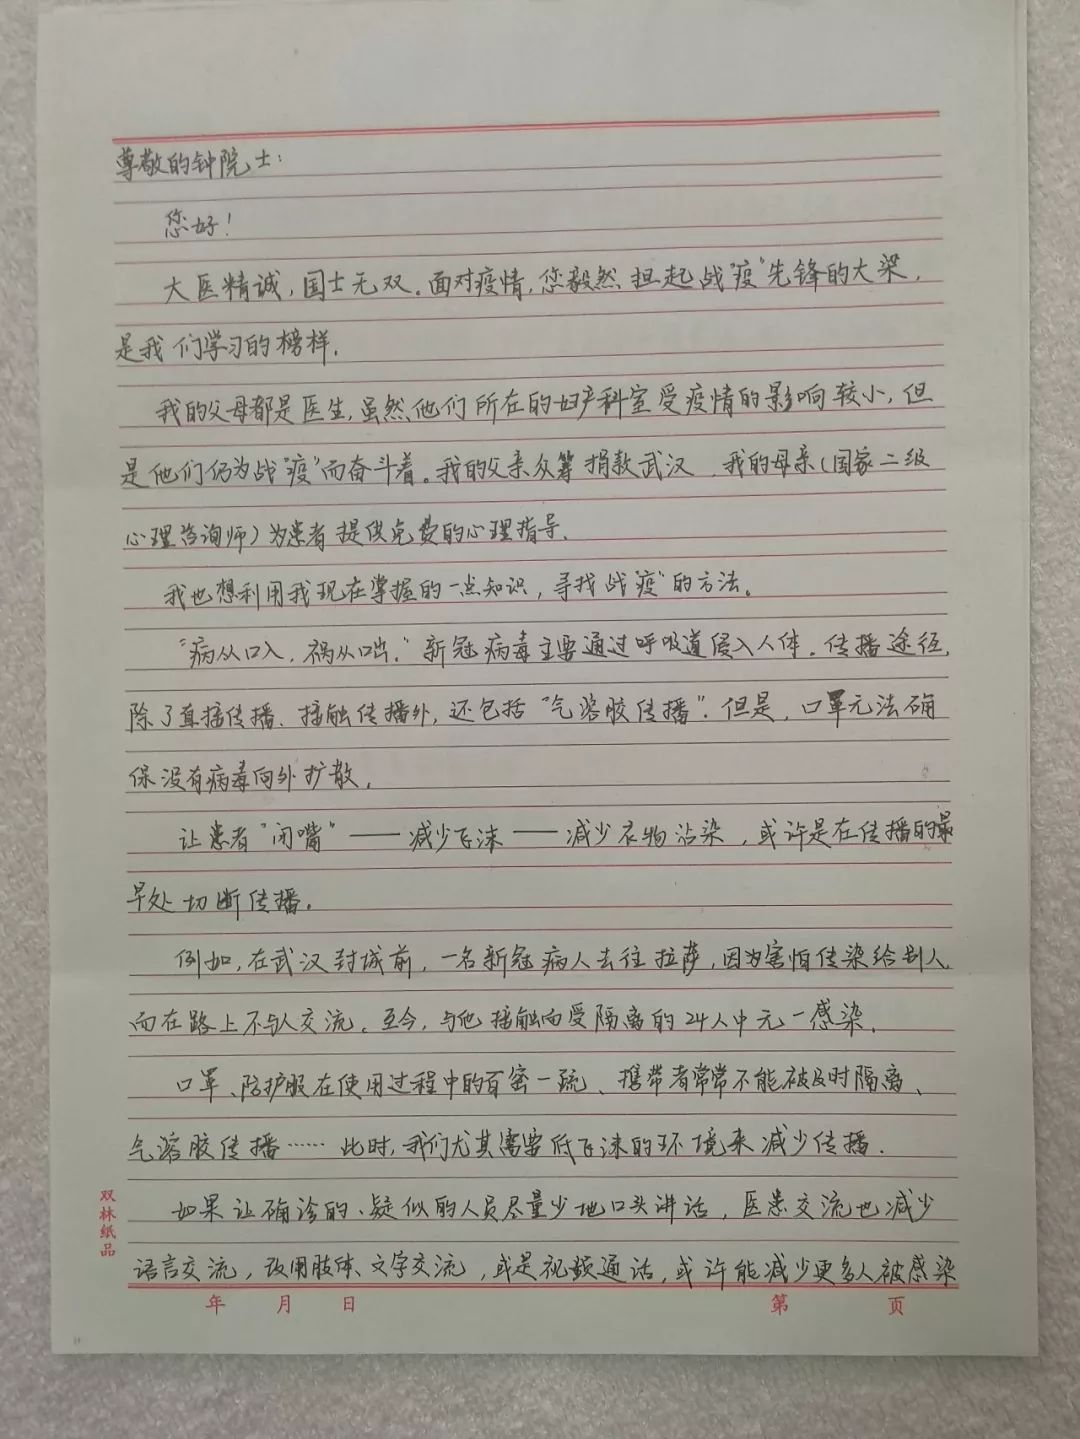 尊敬的钟院士：
您好！
大医精诚，国士无双。面对疫情，您毅然担起战"疫"先锋的大梁，
是我们学习的榜样.
我的父母都是医生，虽然他们所在的妇产科室受疫情的影响较小，但
是他们仍为战"疫"而奋斗着。我的父亲众筹捐款武汉，我的母亲（国家二级
心理咨询师）为患者提供免费的心理指导.
我也想利用我现在掌握的一点知识，寻找战"疫"的方法。
"病从口入，祸从口出."新冠病毒主要通过呼吸道侵入人体.传播途径，
除了直接传播、接触传播外，还包括"气溶胶传播".但是，口罩无法确
保没有病毒向外扩散.
让患者"闭嘴"——减少飞沫——减少衣物沾染，或许是在传播的最
早处切断传播.
例如，在武汉封城前，一名新冠病人去往拉萨，因为害怕传染给别人
而在路上不与人交流.至今，与他接触而受隔离的24人中无一感染.
口罩、防护服在使用过程中的百密一疏、携带者常常不能被及时隔离、
气溶胶传播……此时，我们尤其需要低飞沫的环境来减少传播.
如果让确诊的、疑似的人员尽量少地口头讲话，医患交流也减少
语言交流，改用肢体、文字交流，或是视频通话，或许能减少更多人被感染
双林纸品
年 月 日 第 页